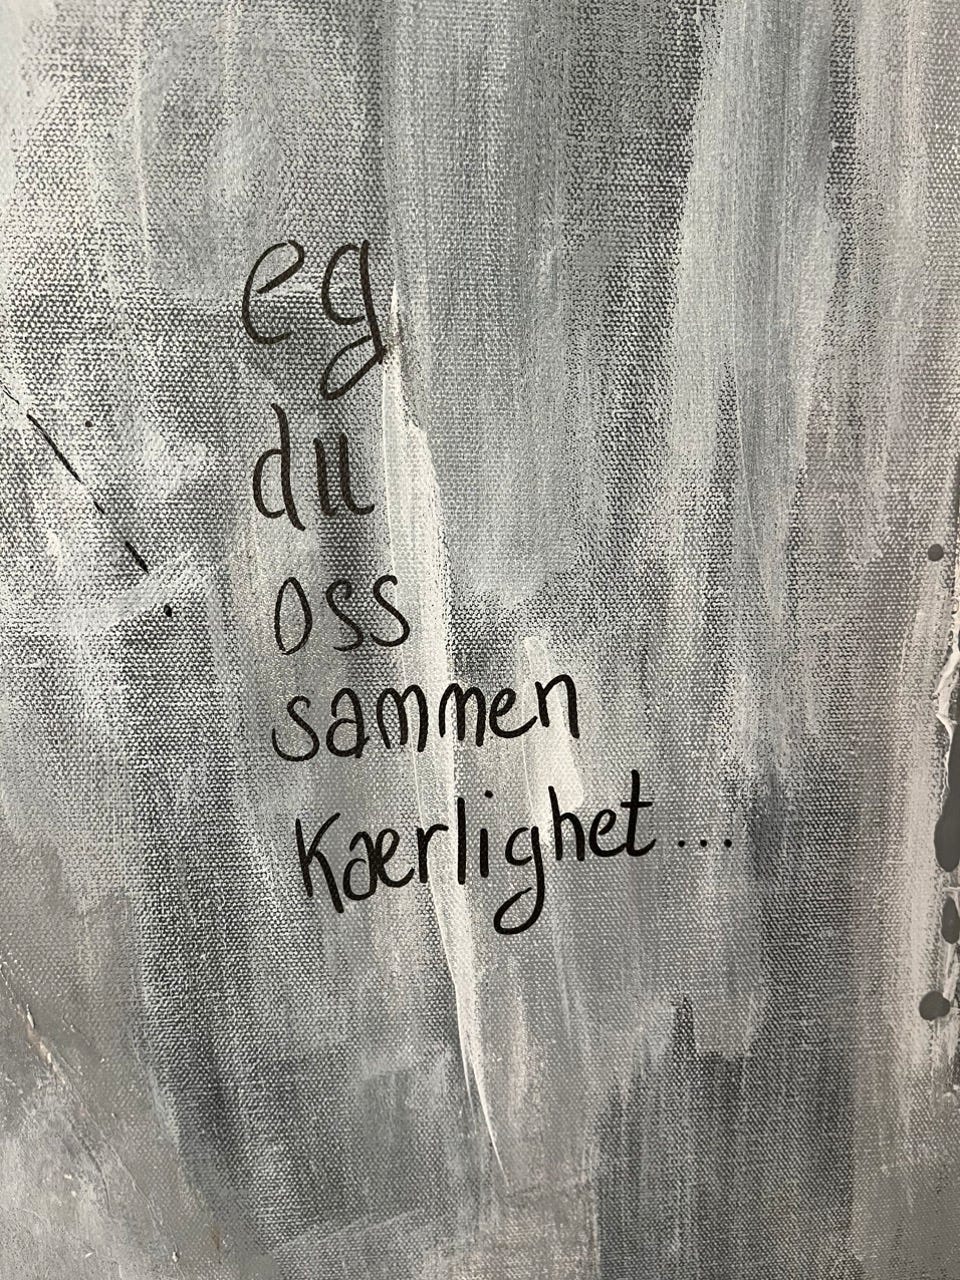 eg
du
oss
sammen
Kærlighet...